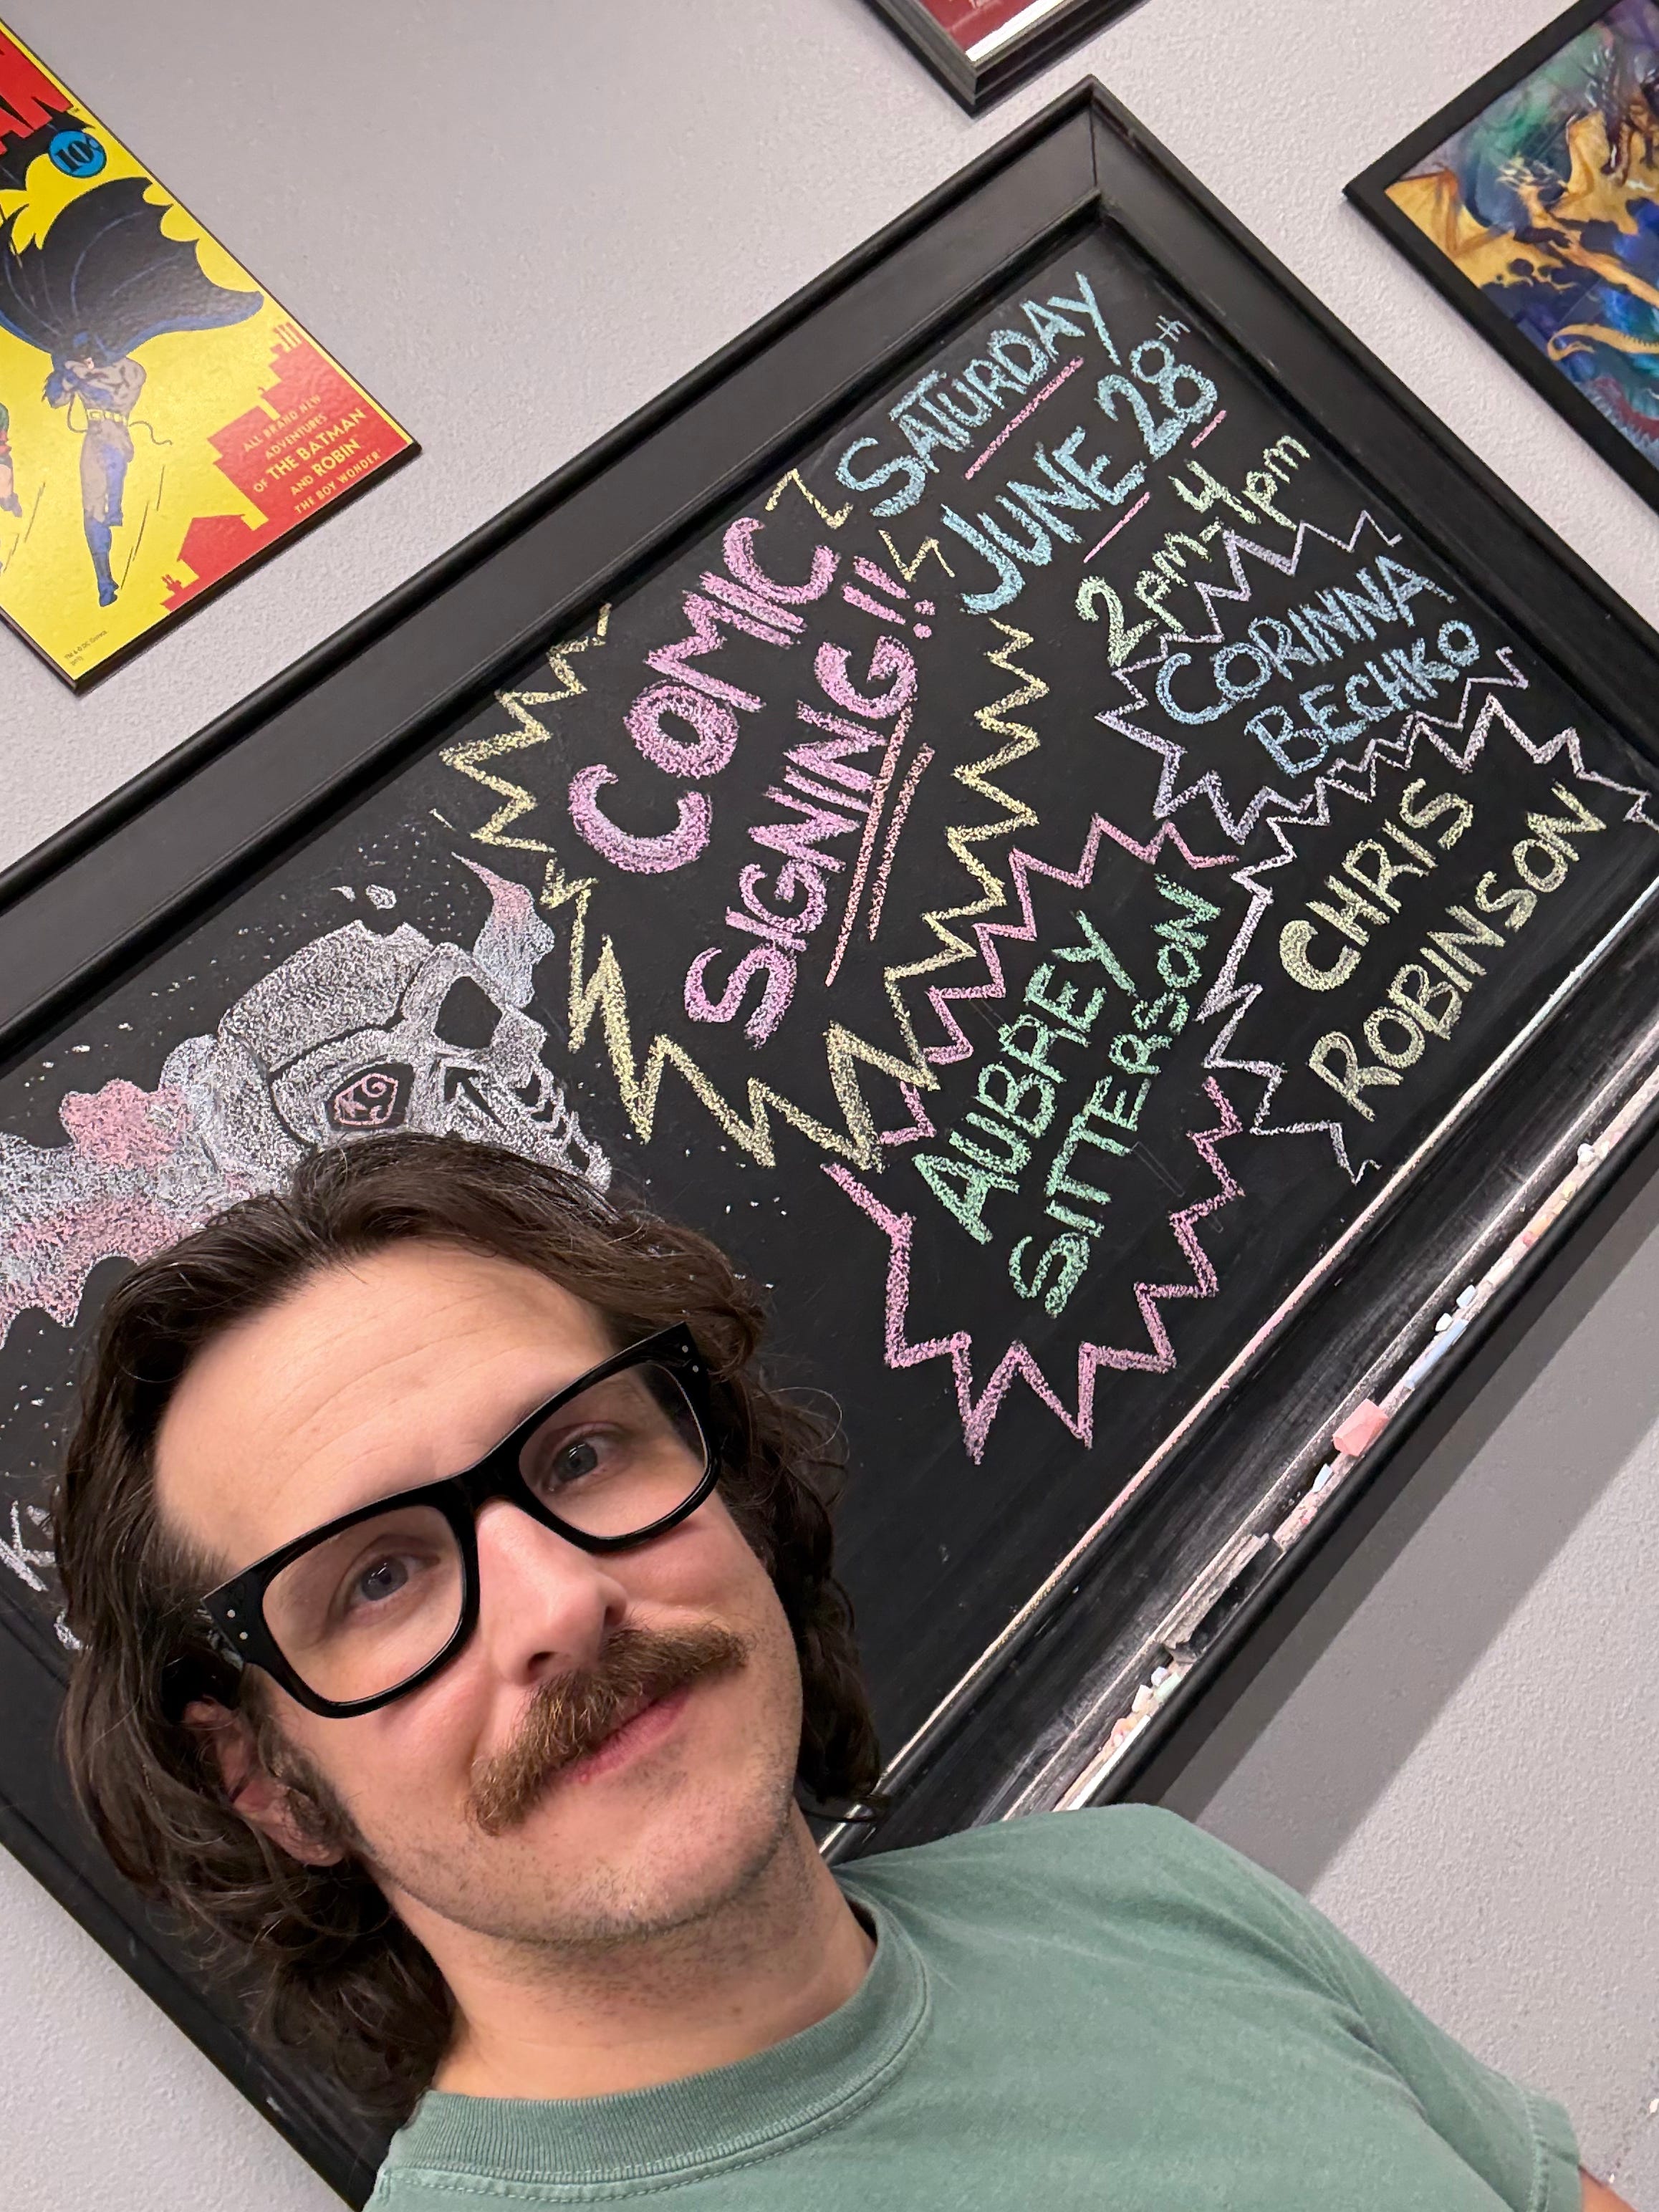 10¢
ALL BRAND NEW
ADVENTURES
OF THE BATMAN
AND ROBIN
THE BOY WONDER!
COMIC
SIGNING!!
SATURDAY
JUNE 28th
2pm-4pm
CORINNA
BECHKO
AUBREY
SITTERSON
CHRIS
ROBINSON